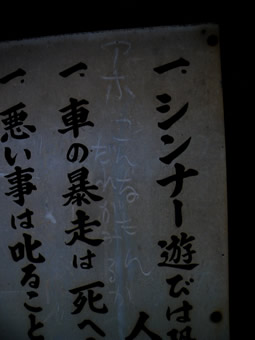 一、シンナー遊びは
人
アホ こんなもん
だれがみるか
一、車の暴走は死へ
一、悪い事は叱ること